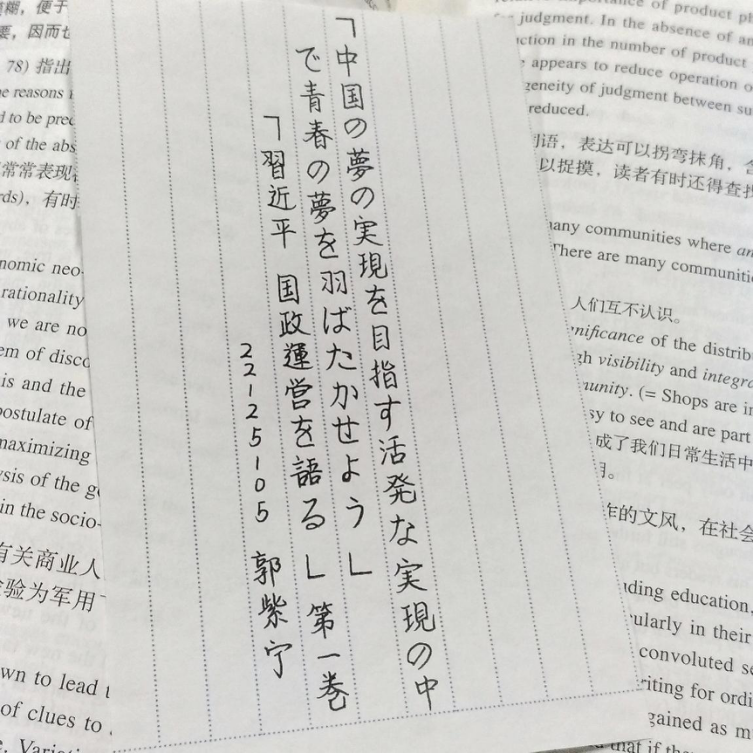 「中国の夢の実現を目指す活発な実現の中
で青春の夢を羽ばたかせよう」
「習近平 国政運営を語る」第一巻
22125105 郭紫宁
模糊，便于
要，因而也
78) 指出
he reasons
to be
of the abs
常常表现
rds)，有时
nomic neo-
rationality
we are no
em of disco
is and the
postulate of
maximizing
ysis of the
in the socio-
有关商业人
验为军用
wn to lead
of clues to
importance of product
for judgment. In the absence of an
uction in the number of product
appears to reduce operation
geneity of judgment between
reduced.
词语，表达可以拐弯抹角，
以捉摸，读者有时还得查找
any communities where
There are many
人们互不认识。
gnificance of the distrib
gh visibility and integra
munity. (= Shops are
sy to see and are part
成了我们日常生活中
用。
作的文风，在社会
ding education,
ularly in their
convoluted
riting for
gained as
that if